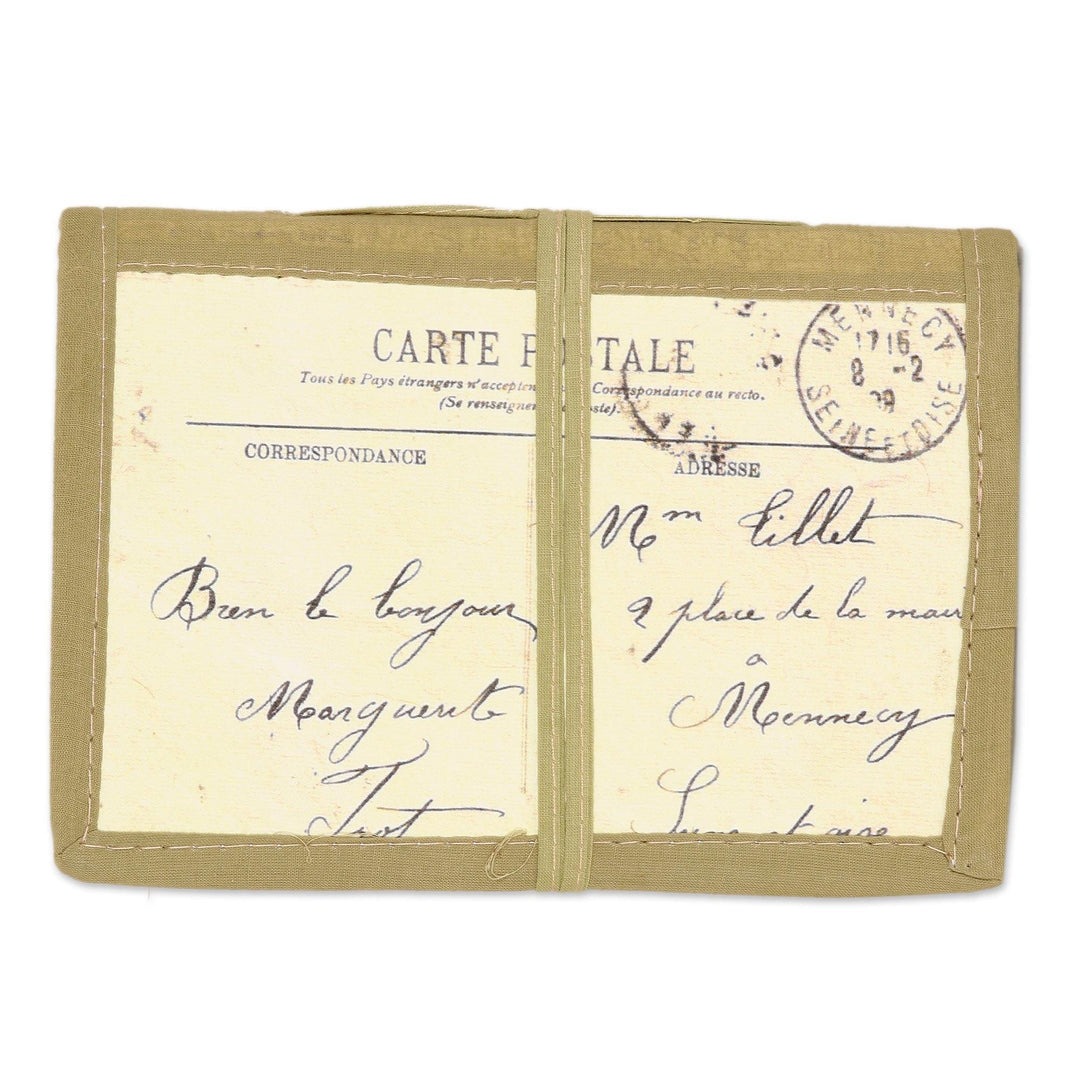 CARTE P STALE
Tous les Pays étrangers n'accepten Correspondance au recto.
(Se renseigner oste).
MENNECY
1716
8 -2
09
SEINE ET OISE
CORRESPONDANCE
ADRESSE
Bien le bonjour
Marguerite
Trot
Mm Tillet
9 place de la mair
à
Mennecy
Seine et oise